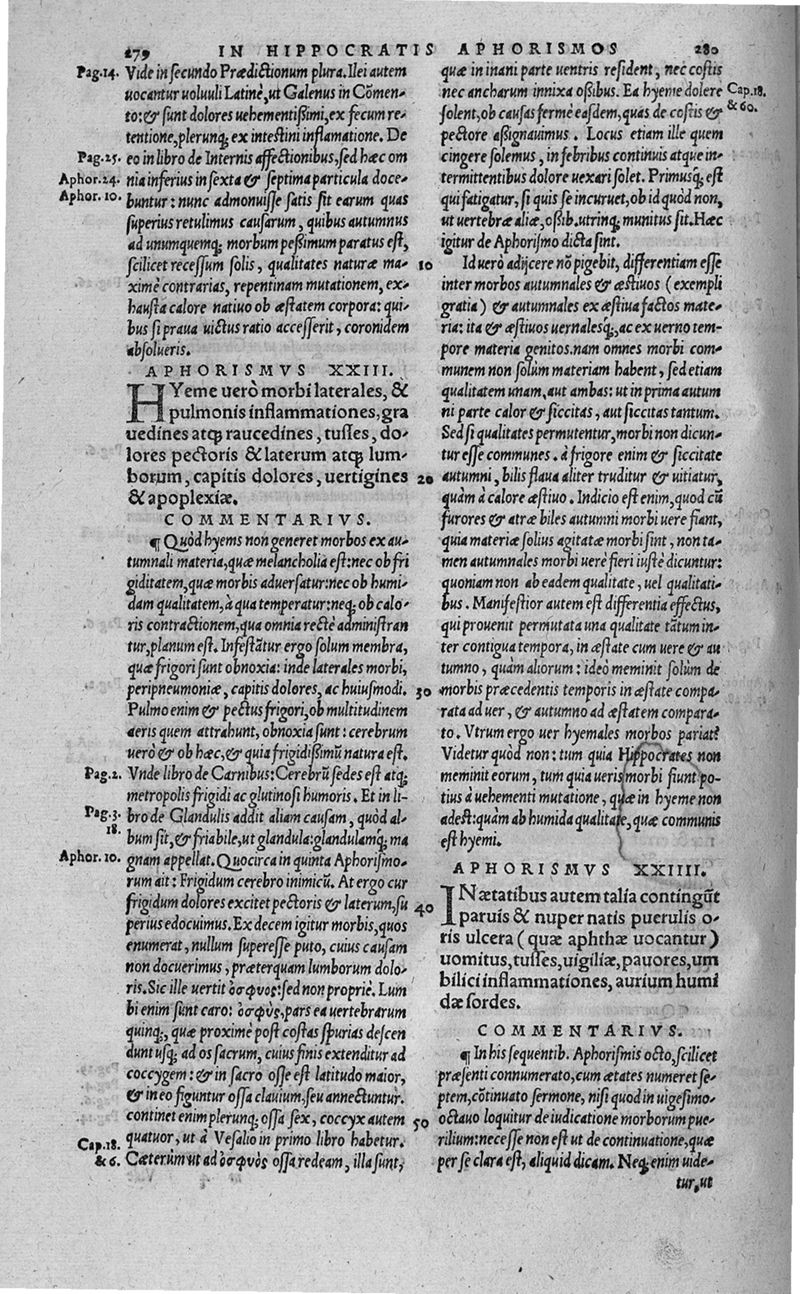 279 IN HIPPOCRATIS APHORISMOS 280
Pag.14. Vide in secundo Prædictionum plura. Ilei autem
uocantur uoluuli Latinè, ut Galenus in Cõmen-
to: & sunt dolores uehementißimi, ex fecum re-
tentione, plerunq; ex intestini inflamatione. De
Pag.25. eo in libro de Internis affectionibus, sed hæc om
Aphor.24. nia inferius in sexta & septima particula doce-
Aphor.10. buntur: nunc admonuisse satis sit earum quas
superius retulimus causarum, quibus autumnus
ad unumquemq; morbum peßimum paratus est,
scilicet recessum solis, qualitates naturæ ma-
ximè contrarias, repentinam mutationem, ex-
hausta calore natiuo ob æstatem corpora: qui-
bus si praua uictus ratio accesserit, coronidem
absolueris.
APHORISMVS XXIII.
HYeme uerò morbi laterales, &
pulmonis inflammationes, gra
uedines atq; raucedines, tusses, do-
lores pectoris & laterum atq; lum-
borum, capitis dolores, uertigines
& apoplexiæ.
COMMENTARIVS.
¶ Quòd hyems non generet morbos ex au-
tumnali materia, quæ melancholia est: nec ob fri
giditatem, quæ morbis aduersatur: nec ob humi-
dam qualitatem, à qua temperatur: neq; ob calo-
ris contractionem, qua omnia rectè administran
tur, planum est. Infestãtur ergo solum membra,
quæ frigori sunt obnoxia: inde laterales morbi,
peripneumoniæ, capitis dolores, ac huiusmodi.
Pulmo enim & pectus frigori, ob multitudinem
aeris quem attrahunt, obnoxia sunt: cerebrum
uerò & ob hæc, & quia frigidißimũ natura est.
Pag.2. Vnde libro de Carnibus: Cerebrũ sedes est atq;
metropolis frigidi ac glutinosi humoris. Et in li-
Pag.3. bro de Glandulis addit aliam causam, quòd al-
18. bum sit, & friabile, ut glandula: glandulamq; ma
Aphor.10. gnam appellat. Quocirca in quinta Aphorismo-
rum ait: Frigidum cerebro inimicũ. At ergo cur
frigidum dolores excitet pectoris & laterum, su
perius edocuimus. Ex decem igitur morbis, quos
enumerat, nullum superesse puto, cuius causam
non docuerimus, præterquam lumborum dolo-
ris. Sic ille uertit ὀσφύος: sed non propriè. Lum
bi enim sunt caro: ὀσφὺς, pars ea uertebrarum
quinq;, quæ proximè post costas spurias descen
dunt usq; ad os sacrum, cuius finis extenditur ad
coccygem: & in sacro osse est latitudo maior,
& in eo figuntur ossa clauium, seu annectuntur.
continet enim plerunq; ossa sex, coccyx autem
quatuor, ut à Vesalio in primo libro habetur.
Cap.18. & 6. Cæterùm ut ad ὀσφυὸς ossa redeam, illa sunt,
quæ in inani parte uentris resident, nec costis
nec ancharum innixa oßibus. Ea hyeme dolere Cap.18.
solent, ob causas fermè easdem, quas de costis & & 60.
pectore aßignauimus. Locus etiam ille quem
cingere solemus, in febribus continuis atque in-
termittentibus dolore uexari solet. Primusq; est
qui fatigatur, si quis se incuruet, ob id quòd non,
ut uertebræ aliæ, oßib. utrinq; munitus sit. Hæc
igitur de Aphorismo dicta sint.
10 Id uerò adijcere nõ pigebit, differentiam esse
inter morbos autumnales & æstiuos (exempli
gratia) & autumnales ex æstiua factos mate-
ria: ita & æstiuos uernalesq;, ac ex uerno tem-
pore materia genitos. nam omnes morbi com-
munem non solùm materiam habent, sed etiam
qualitatem unam, aut ambas: ut in prima autum
ni parte calor & siccitas, aut siccitas tantum.
Sed si qualitates permutentur, morbi non dicun-
tur esse communes. à frigore enim & siccitate
20 autumni, bilis flaua aliter truditur & uitiatur,
quàm à calore æstiuo. Indicio est enim, quod cũ
furores & atræ biles autumni morbi uere fiant,
quia materiæ solius agitatæ morbi sint, non ta-
men autumnales morbi uerè fieri iustè dicuntur:
quoniam non ab eadem qualitate, uel qualitati-
bus. Manifestior autem est differentia effectus,
qui prouenit permutata una qualitate tãtum in-
ter contigua tempora, in æstate cum uere & au
tumno, quàm aliorum: ideò meminit solùm de
30 morbis præcedentis temporis in æstate compa-
rata ad uer, & autumno ad æstatem compara-
to. Vtrum ergo uer hyemales morbos pariat?
Videtur quòd non: tum quia Hippocrates non
meminit eorum, tum quia ueris morbi fiunt po-
tius à uehementi mutatione, quæ in hyeme non
adest: quàm ab humida qualitate, quæ communis
est hyemi.
APHORISMVS XXIIII.
INætatibus autem talia contingũt
40 paruis & nuper natis puerulis o-
ris ulcera (quæ aphthæ uocantur)
uomitus, tusses, uigiliæ, pauores, um
bilici inflammationes, aurium humi
dæ sordes.
COMMENTARIVS.
¶ In his sequentib. Aphorismis octo, scilicet
præsenti connumerato, cum ætates numeret se-
ptem, cõtinuato sermone, nisi quod in uigesimo-
50 octauo loquitur de iudicatione morborum pue-
rilium: necesse non est ut de continuatione, quæ
per se clara est, aliquid dicam. Neq; enim uide-
tur, ut